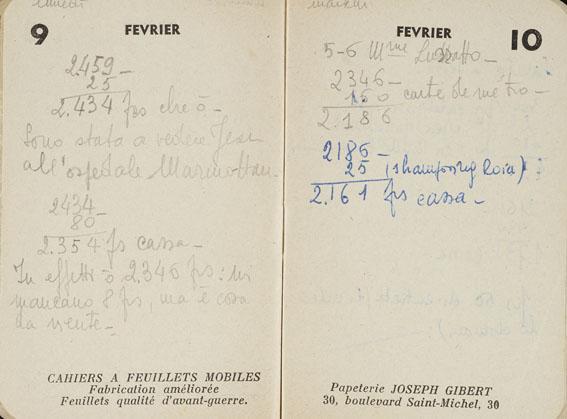 9
FEVRIER
2459 -
25
2.434 frs che ò -
Sono stata a vedere
all'ospedale Marmottan -
2434 -
80
2.354 frs cassa -
In effetti ò 2.346 frs: mi
mancano 8 frs, ma è cosa
da niente -
CAHIERS A FEUILLETS MOBILES
Fabrication améliorée
Feuillets qualité d'avant-guerre.
FEVRIER
10
5-6 Mme Luzzatto -
2346 -
150 carte de métro -
2.186
2186 -
25 (shampoing Roia)
2.161 frs cassa -
Papeterie JOSEPH GIBERT
30, boulevard Saint-Michel, 30